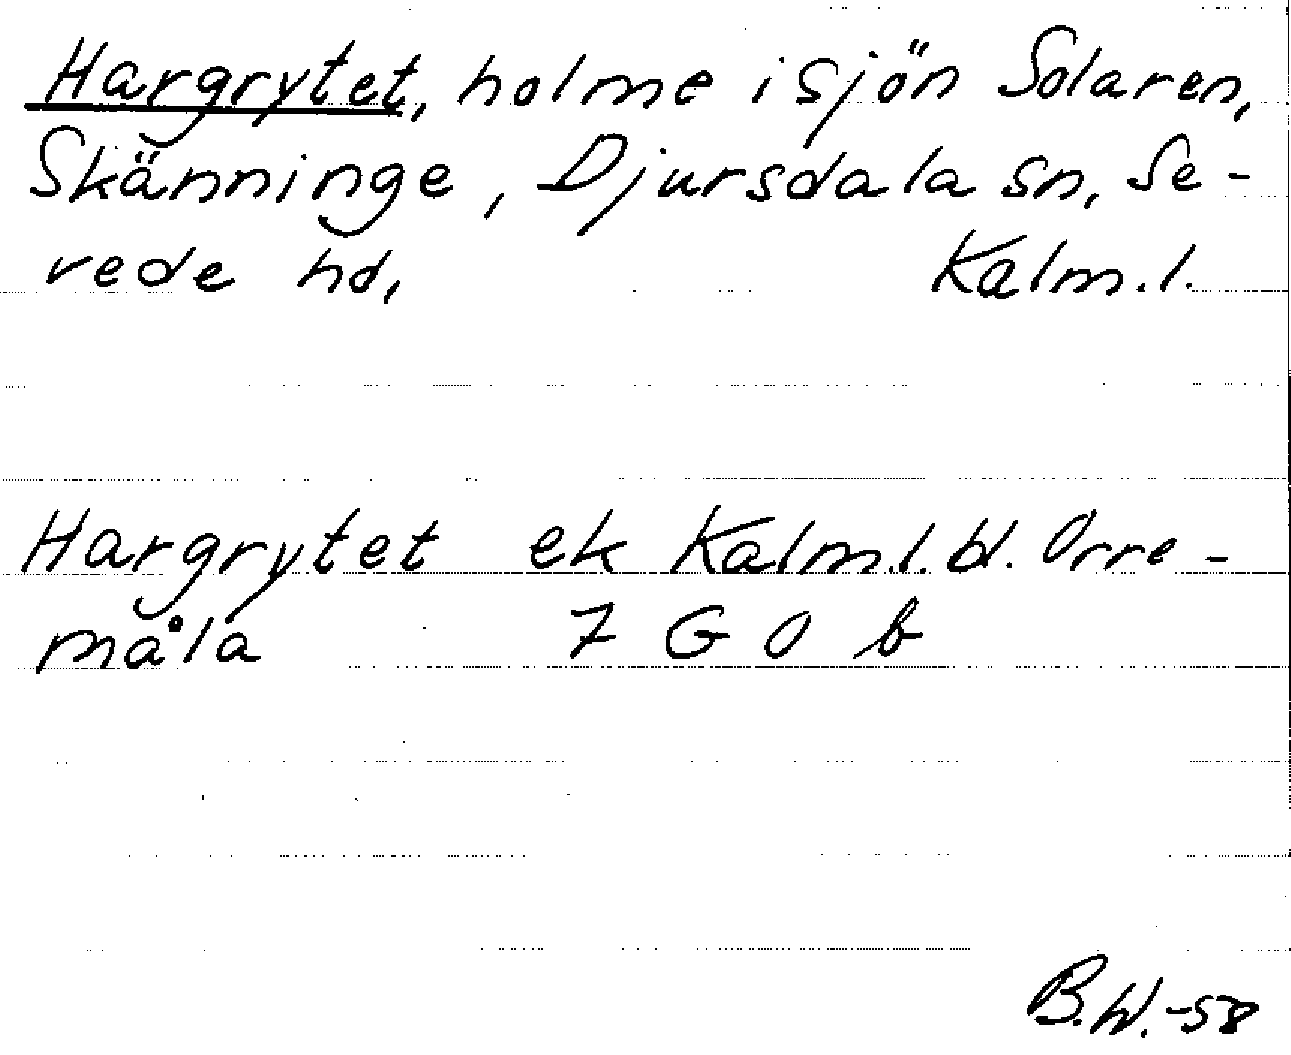 Hargrytet, holme i sjön Solaren,
Skänninge, Djursdala sn, Se-
vede hd, Kalm.l.
Hargrytet ek Kalm.l. bl. Orre-
måla 7 G O b
B.W.-58